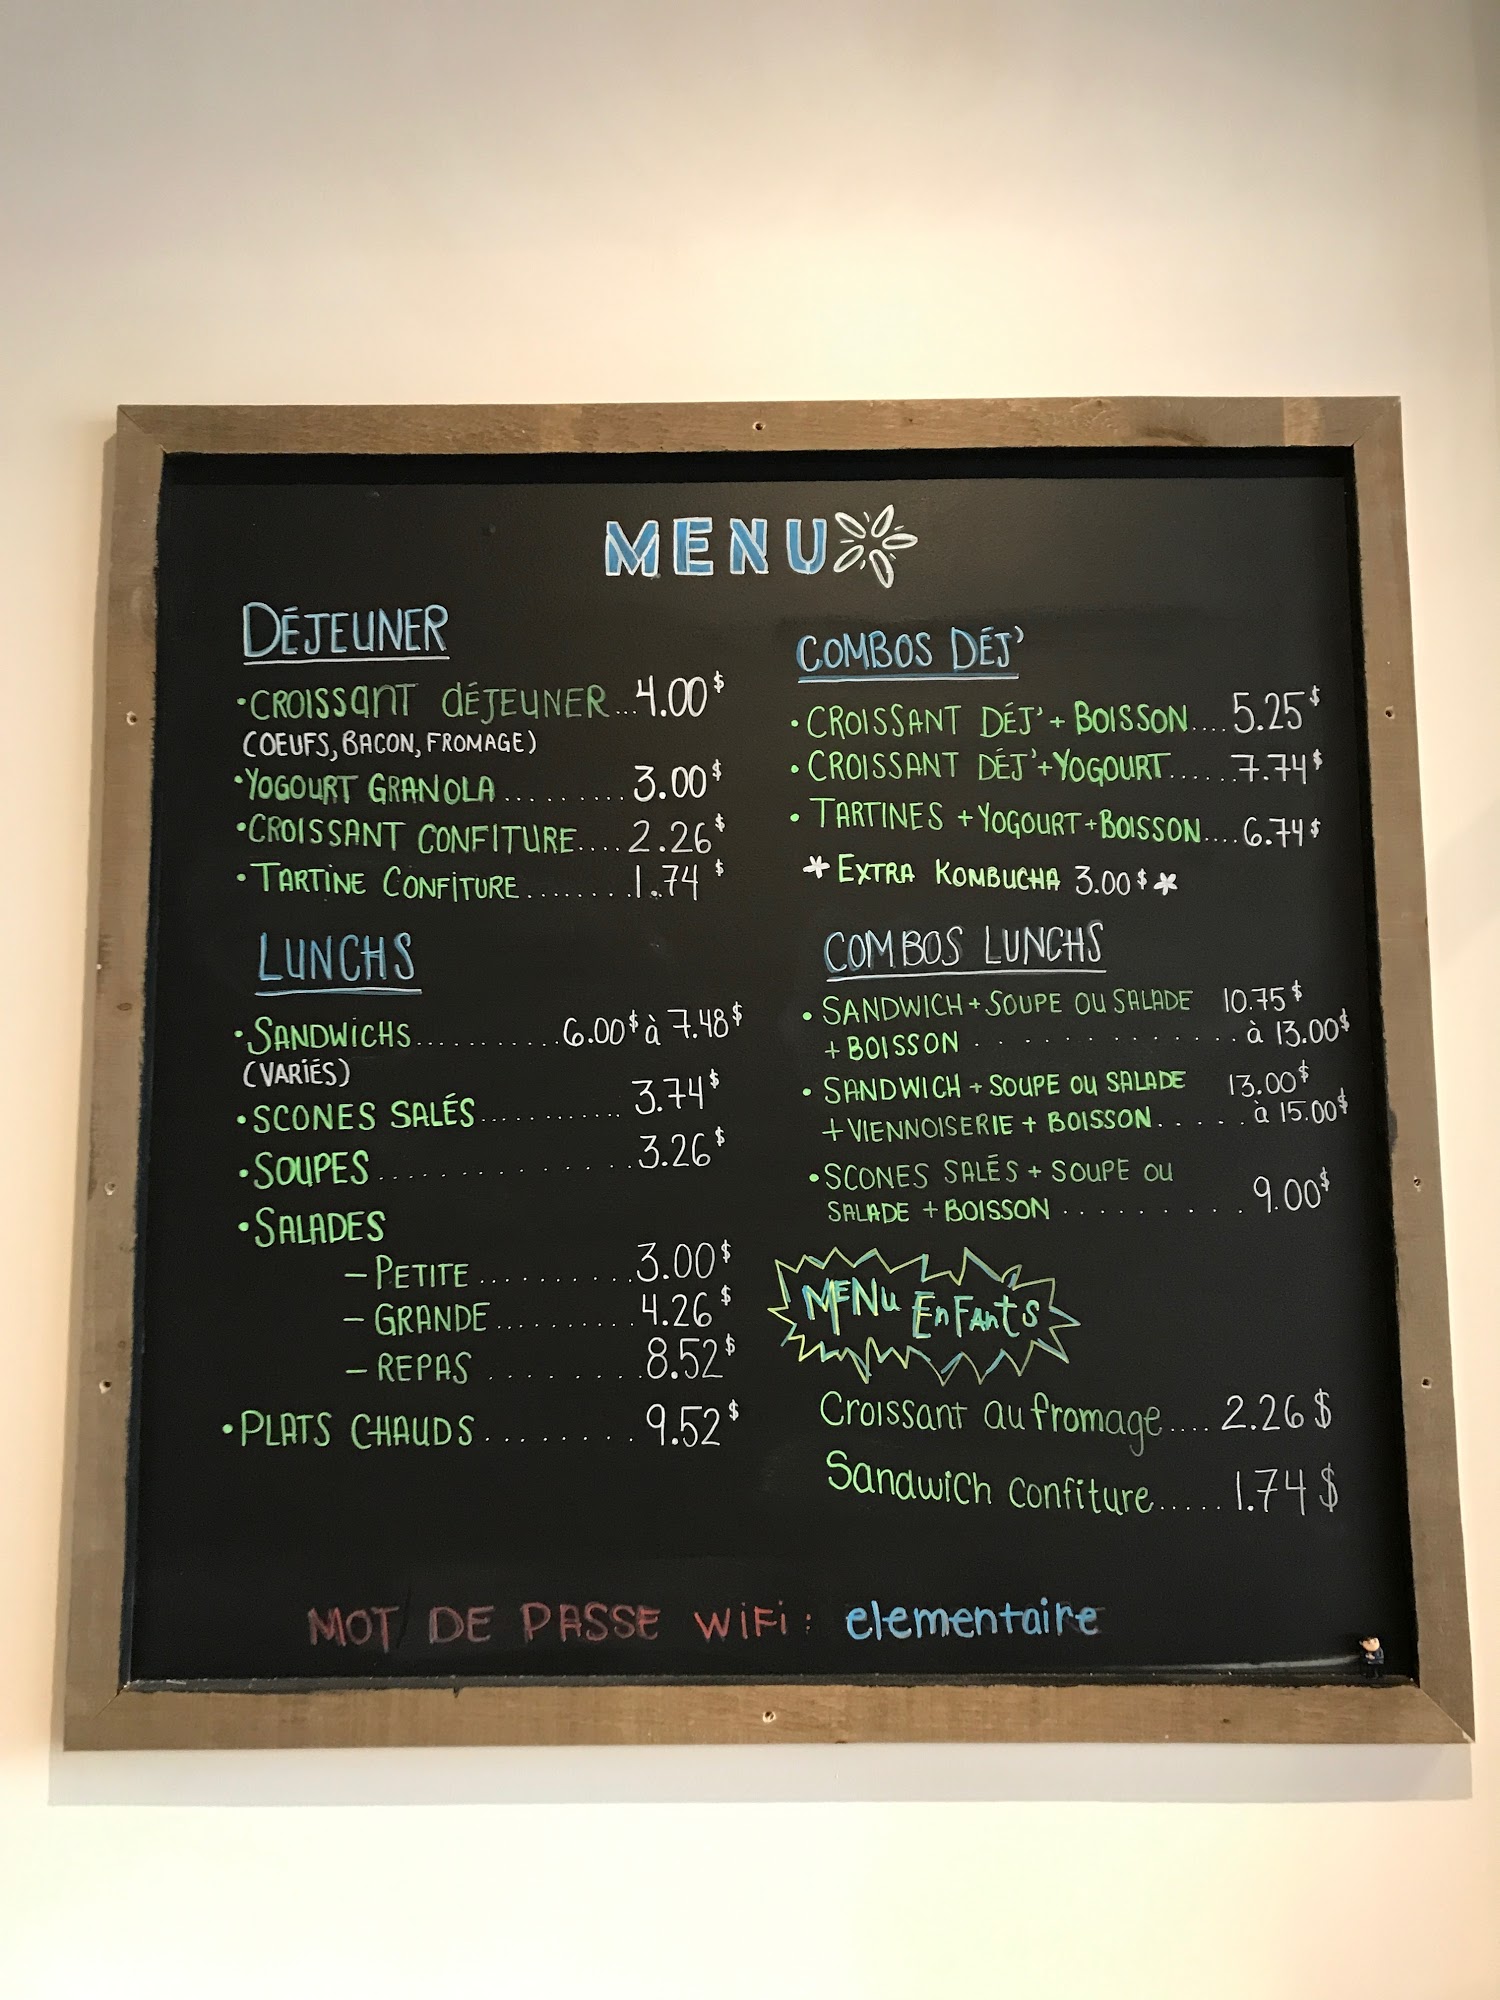 MENU
DÉJEUNER
•CROISSANT DÉJEUNER...4.00$
(OEUFS, BACON, FROMAGE)
•YOGOURT GRANOLA.........3.00$
•CROISSANT CONFITURE....2.26$
•TARTINE CONFITURE.......1.74$
LUNCHS
•SANDWICHS...........6.00$ à 7.48$
(VARIÉS)
•SCONES SALÉS............3.74$
•SOUPES..................3.26$
•SALADES
– PETITE..........3.00$
– GRANDE..........4.26$
– REPAS.........8.52$
•PLATS CHAUDS.........9.52$
COMBOS DÉJ'
•CROISSANT DÉJ' + BOISSON....5.25$
•CROISSANT DÉJ' + YOGOURT.....7.74$
•TARTINES + YOGOURT + BOISSON....6.74$
* EXTRA KOMBUCHA 3.00$ *
COMBOS LUNCHS
•SANDWICH + SOUPE OU SALADE 10.75$
+ BOISSON..............à 13.00$
•SANDWICH + SOUPE OU SALADE 13.00$
+ VIENNOISERIE + BOISSON......à 15.00$
•SCONES SALÉS + SOUPE OU
SALADE + BOISSON..........9.00$
MENU ENFANTS
Croissant au fromage....2.26$
Sandwich confiture.....1.74$
MOT DE PASSE WIFI: elementaire